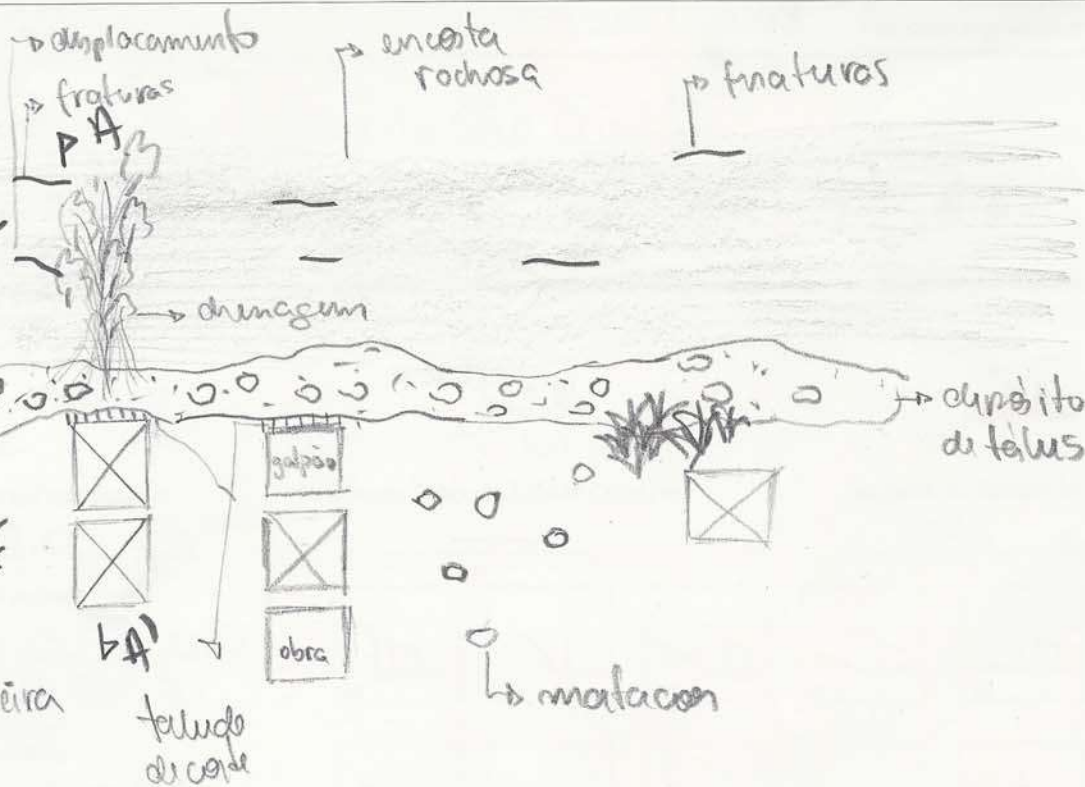 desplacamento
fraturas
A
encosta
rochosa
fraturas
drenagem
depósito
de tálus
galpão
obra
A'
eira
talude
de corte
matacoes